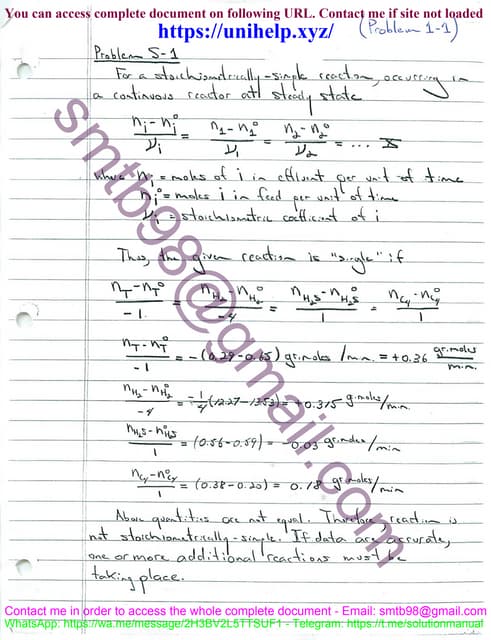 You can access complete document on following URL. Contact me if site not loaded
https://unihelp.xyz/
(Problem 1-1)
Problem 5-1
For a stoichiometrically-simple reaction, occurring in
a continuous reactor at steady state
(nᵢ - nᵢ°)/νᵢ = (n₁ - n₁°)/ν₁ = (n₂ - n₂°)/ν₂ = ... X
where nᵢ = moles of i in effluent per unit of time
nᵢ° = moles i in feed per unit of time
νᵢ = stoichiometric coefficient of i
Thus, the given reaction is "single" if
(n_T - n_T°)/-1 = (n_H₂ - n_H₂°)/-4 = (n_H₂S - n_H₂S°)/1 = (n_C₄ - n_C₄°)/1
(n_T - n_T°)/-1 = -(0.29-0.65) gr.moles/min. = +0.36 gr.moles/min.
(n_H₂ - n_H₂°)/-4 = -1/4(12.27-13.53) = +0.315 g.moles/min.
(n_H₂S - n_H₂S°)/1 = (0.56-0.59) = -0.03 gr.moles/min
(n_C₄ - n_C₄°)/1 = (0.38-0.20) = 0.18 gr.moles/min
Above quantities are not equal. Therefore, reaction is
not stoichiometrically-simple. If data are accurate,
one or more additional reactions must be
taking place.
smtb98@gmail.com
Contact me in order to access the whole complete document - Email: smtb98@gmail.com
WhatsApp: https://wa.me/message/2H3BV2L5TTSUF1 - Telegram: https://t.me/solutionmanual